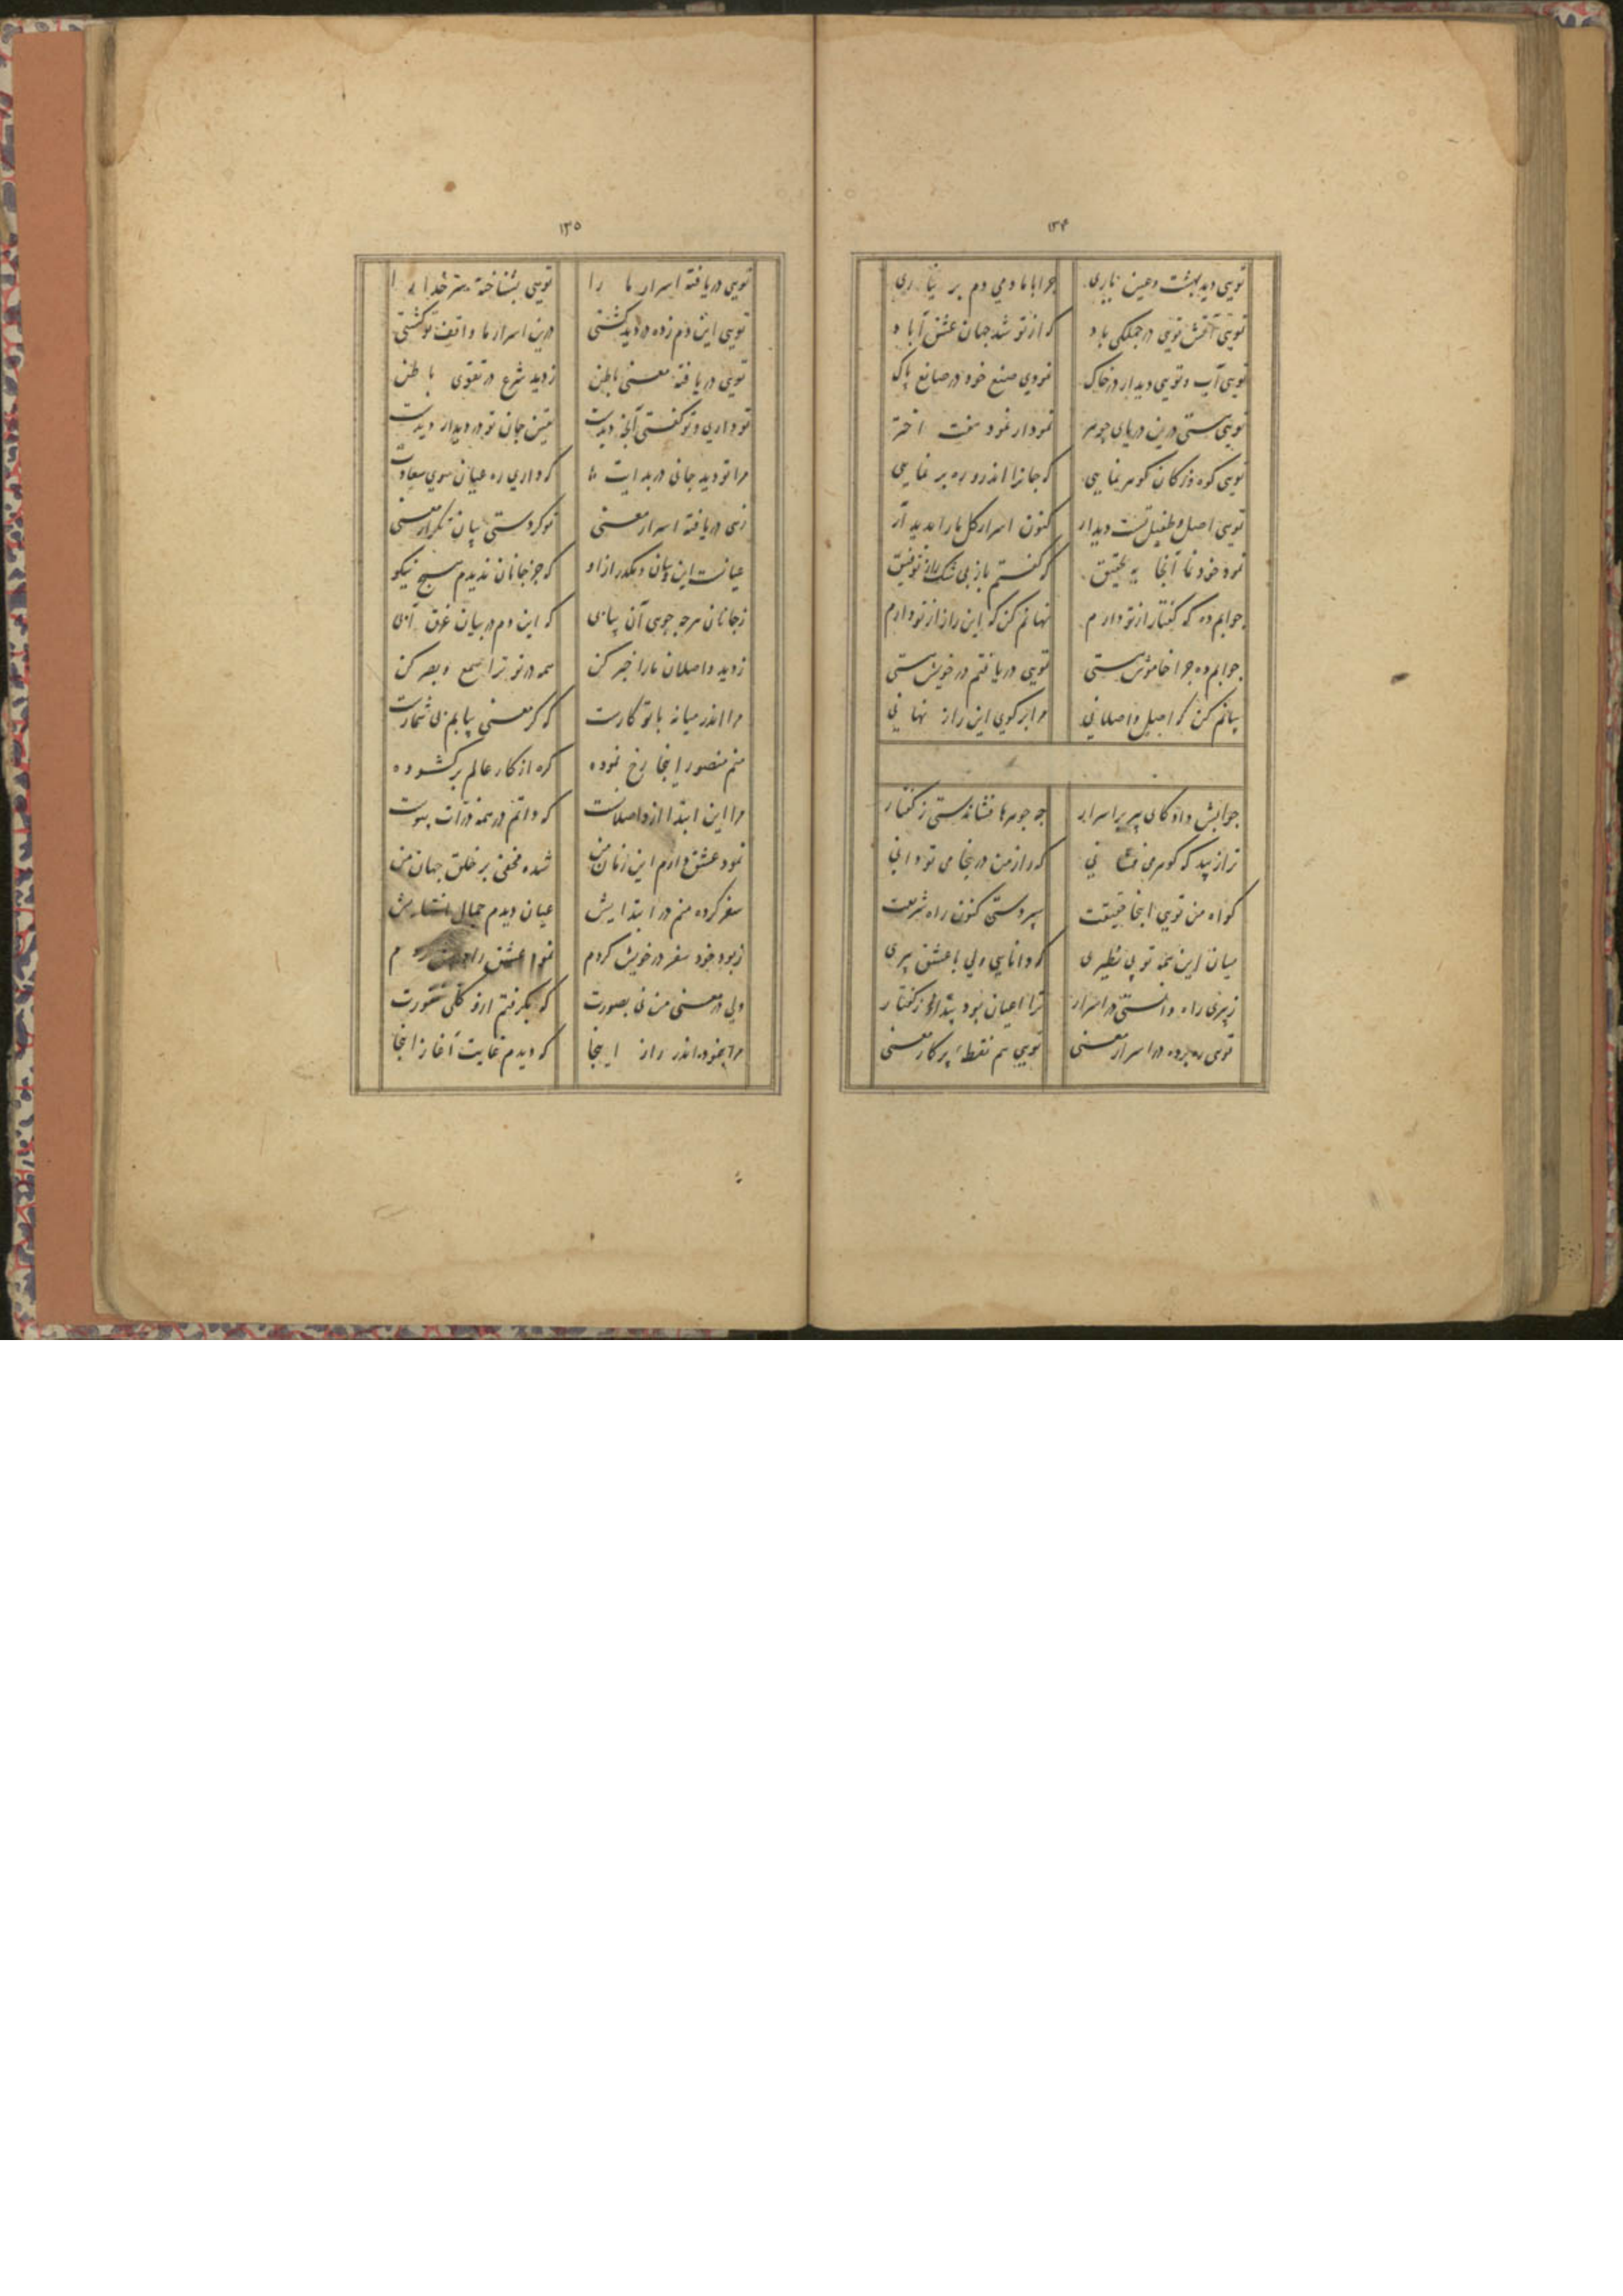 ۱۳۴
تویی دید بهشت و عین ناری چرا با ما دمی دم بر نیاری
تویی آتش تویی در جملگی باد که از تو شد جهان عشق آباد
تویی آب و تویی دیدار در خاک نمودی صنع خود در صانع پاک
تویی هستی درین دریای جوهر نمودار نمود هفت اختر
تویی کوه وز کان گوهر نمایی که جانرا اندرو ره بر نمایی
تویی اصل و طفیل تست دیدار کنون اسرار کل ما را بدید آر
نمود خود نما آنجا به تحقیق که گفتم باز بی شک راز توفیق
جوابم ده که گفتار از تو دارم نهانم کن که این راز از تو دارم
جوابم ده چرا خاموش هستی تویی دریافتم در خویش هستی
بیانم کن که اصل واصلانی مرا بر گوی این راز نهانی
جوابش داد کای پیر پر اسرار چه جوهرها فشاندستی ز گفتار
ترا زیبد که گوهر می فشانی که راز من در اینجا می تو دانی
گواه من تویی اینجا حقیقت سپردستی کنون راه شریعت
میان این همه تو بی نظیری که دانایی ولی با عشق پیری
ز پیری راه دانستی در اسرار ترا اعیان بود پنداز گفتار
تویی ره برده در اسرار معنی تویی هم نقطه پرگار معنی
۱۳۵
تویی دریافته اسرار ما را تویی بشناخته سر خدا را
تویی این دم زده در دید گشتی درین اسرار ما واقف تو گشتی
تویی دریافته معنی باطن ز دید شرع در تقوی باطن
تو داری و تو گفتی آنچه دیدت یقین جان تو در دیدار دیدت
مرا تو دید جانی در بدایت که داری ره عیان سوی سعادت
زهی دریافته اسرار معنی تو کردستی بیان تکرار معنی
عیانست این و بیان و بگذر از او که جز جانان ندیدم هیچ نیکو
ز جانان هر چه جویی آن بیابی که این دم در بیان غرق آبی
ز دید واصلان ما را خبر کن همه در تو ترا سمع و بصر کن
مرا اندر میانه با تو کارت که گر معنی بیابم بی شمارت
منم منصور اینجا رخ نموده گره از کار عالم برگشوده
مرا این ابتدا از واصلانست که ذاتم در همه ذرات پیوست
نمود عشق دارم این زمان من شده مخفی بر خلق جهان من
سفر کرده منم در ابتدایش عیان دیدم جمال انتهایش
ز بود خود سفر در خویش کردم
ولی در معنی من نی بصورت که بگرفتم ازو کلی
مرا بنمود اندر راز اینجا که دیدم غایت آغاز اینجا